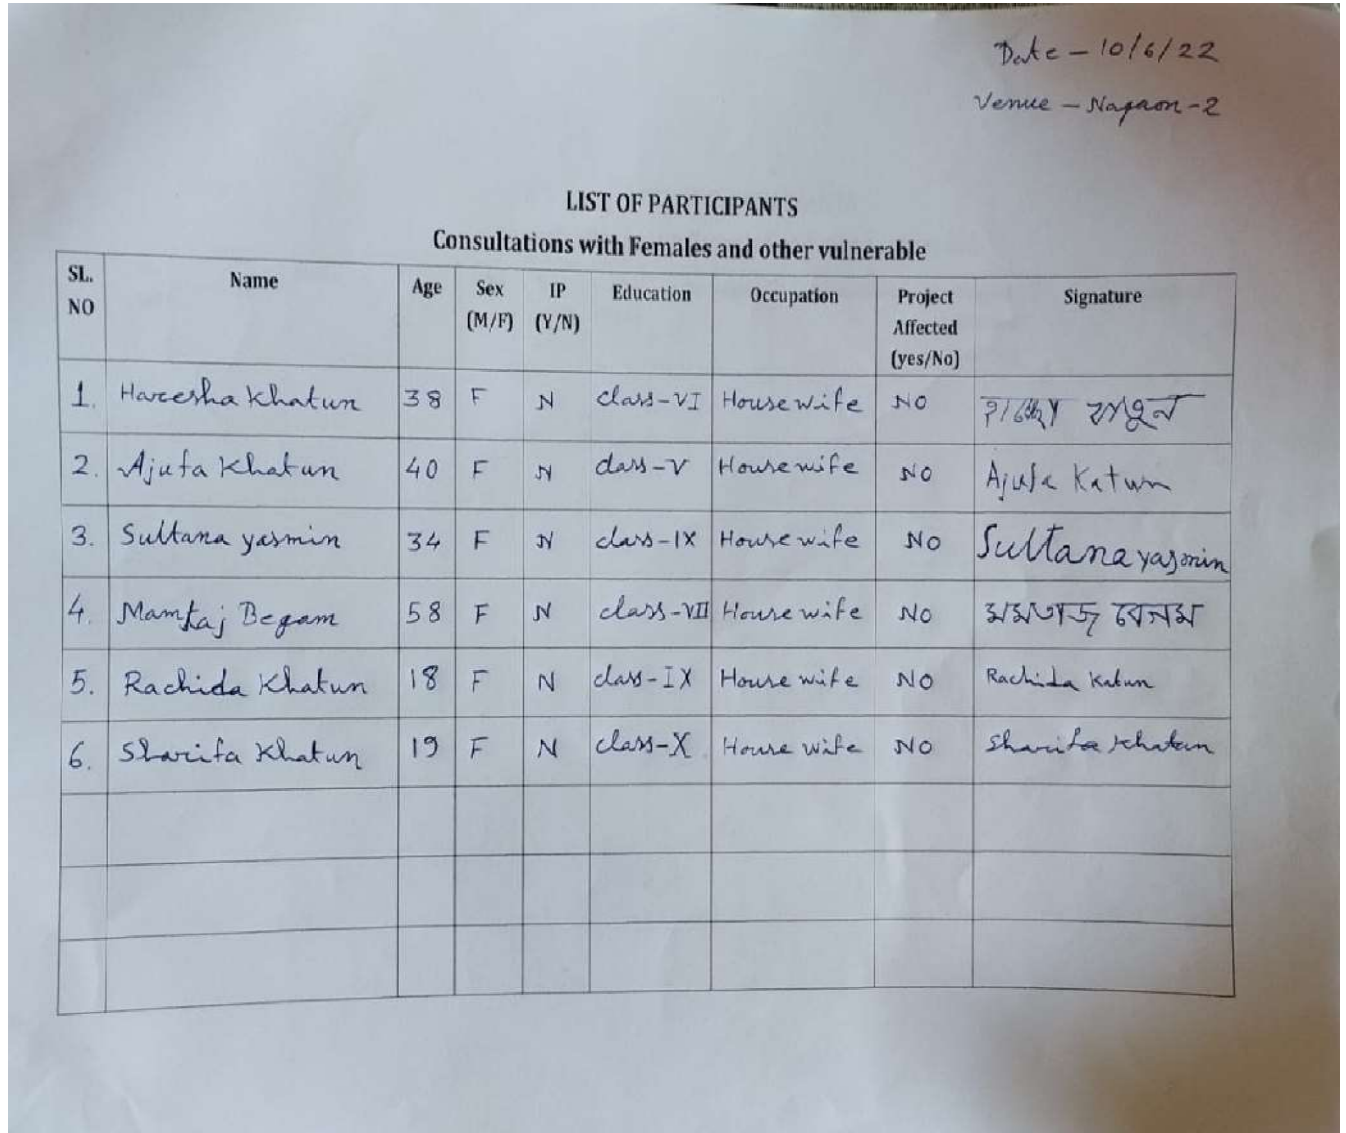 Date - 10/6/22
Venue - Nagaon-2
LIST OF PARTICIPANTS
Consultations with Females and other vulnerable
SL. NO Name Age Sex (M/F) IP (Y/N) Education Occupation Project Affected (yes/No) Signature
1. Hareesha Khatun 38 F N class-VI Housewife NO খাতুন
2. Ajufa Khatun 40 F N class-V Housewife NO Ajufa Katun
3. Sultana yasmin 34 F N class-IX Housewife NO Sultana yasmin
4. Mamtaj Begam 58 F N class-VII Housewife NO মমতাজ বেগম
5. Rachida Khatun 18 F N class-IX Housewife NO Rachida Katun
6. Sharifa Khatun 19 F N class-X House wife NO Sharifa Khatun